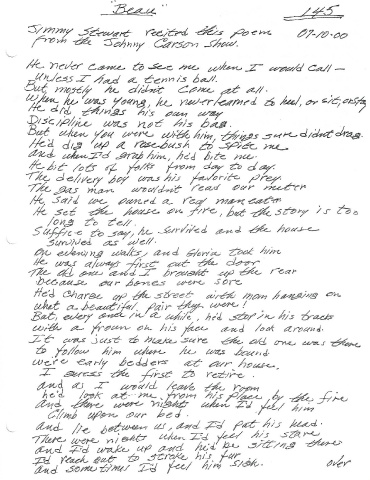 "Beau"
145
Jimmy Stewart recited this poem
from the Johnny Carson Show.
07-10-00
He never came to see me when I would call—
Unless I had a tennis ball.
But mostly he didn't come at all.
When he was young, he never learned to heel, or sit, or stay
He did things his own way
Discipline was not his bag.
But when you were with him, things sure didn't drag.
He'd dig up a rosebush to spite me
and when I'd grab him, he'd bite me.
He bit lots of folks from day to day.
The delivery boy was his favorite prey.
The gas man wouldn't read our meter
He, said we owned a real man eater
He set the house on fire, but the story is too
long to tell.
Suffice to say, he survived and the house
survived as well.
On evening walks, and Gloria took him
He was always first out the door
The old one and I brought up the rear
because our bones were sore
He'd charge up the street with mom hanging on
what a beautiful pair they were!
But, every once in a while, he'd stop in his tracks
with a frown on his face and look around.
It was just to make sure the old one was there
to follow him where he was bound
we're early bedders at our house.
I guess the first to retire.
and as I would leave the room
he'd look at me from his place by the fire
and there were nights when I'd feel him
Climb upon our bed.
and lie between us, and I'd pat his head.
There were nights when I'd feel his stare
and I'd wake up and he'd be sitting there
I'd reach out to stroke his fur
and sometimes I'd feel him sigh.
over